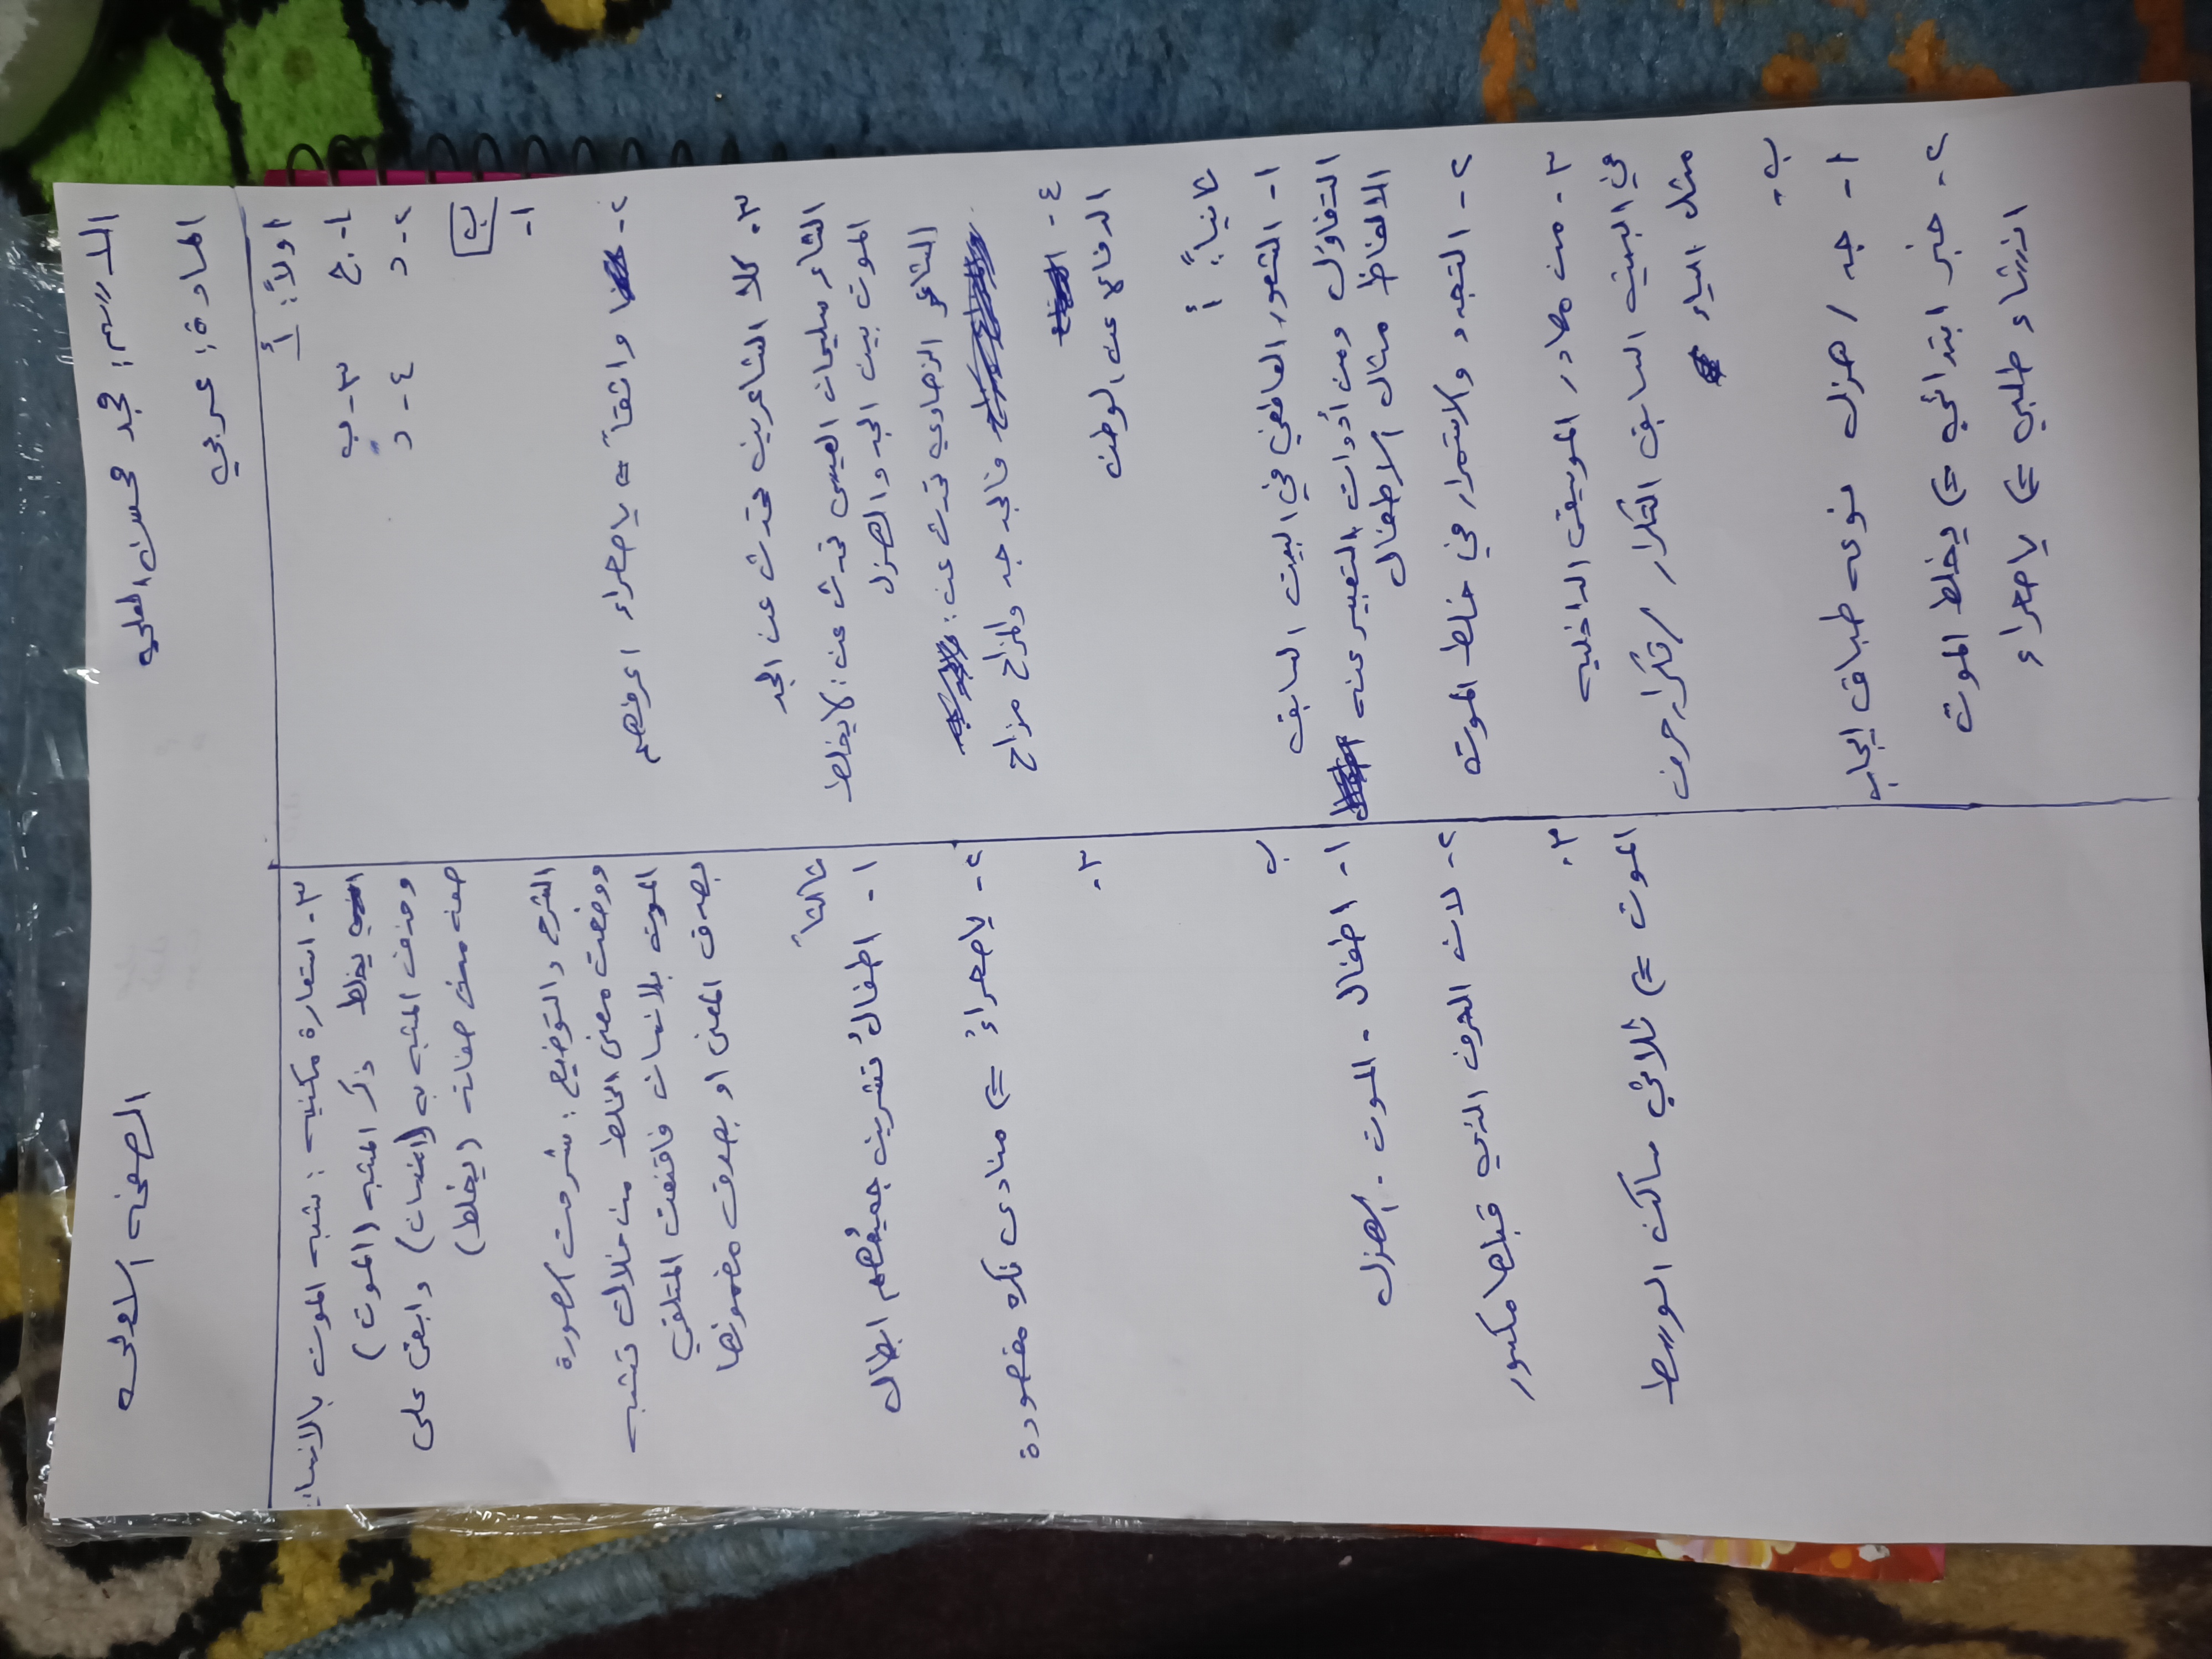 الاسم: مجد محسن العلي
الصفحه الاولى
المادة: عربي
اولاً: أ
١- ج ٣- ب
٢- د ٤- د
ب
١-
٢- واثقاً = ياصحراء اعرفهم
٣- كلا الشاعرين تحدث عن المجد
الشاعر سليمان العيسى تحدث عن: لايخلط
الموت بين الجد والهزل
الشاعر الزهاوي تحدث عن:
فالجد جد والمزاح مزاح
٤-
الدفاع عن الوطن
ثانياً: أ
١- الشعور العاطفي في البيت السابق
التفاؤل ومن أدوات التعبير عنه
الالفاظ مثال الاطفال
٢- التجدد والاستمرار في خلط الموت
٣- من مصادر الموسيقى الداخليه
في البيت السابق التكرار / تكرار حرف
مثل الياء
ب-
١- جد / هزل نوعه طباق ايجاب
٢- خبر ابتدائي => يخلط الموت
انشاء طلبي => ياصحراء
٣- استعارة مكنيه: شبه الموت بالانسان
يخلط ذكر المشبه (الموت)
وحذف المشبه به (انسان) وابقى على
صفه من صفاته (يخلط)
الشرح والتوضيح: شرحت الصورة
ووضحت معنى الخلط من خلال تشبيه
الموت بلانسان فاقنعت المتلقي
بصدق المعنى او بصدق مضمونها
ثالثاً
١- اطفالُ تشرين جميعُهم ابطال
٢- ياصحراءُ => منادى نكره مقصودة
٣-
ب
١- اطفال - الموت - الهزل
٢- لان الحرف الذي قبلها مكسور
٣-
الموت => ثلاثي ساكن الوسط